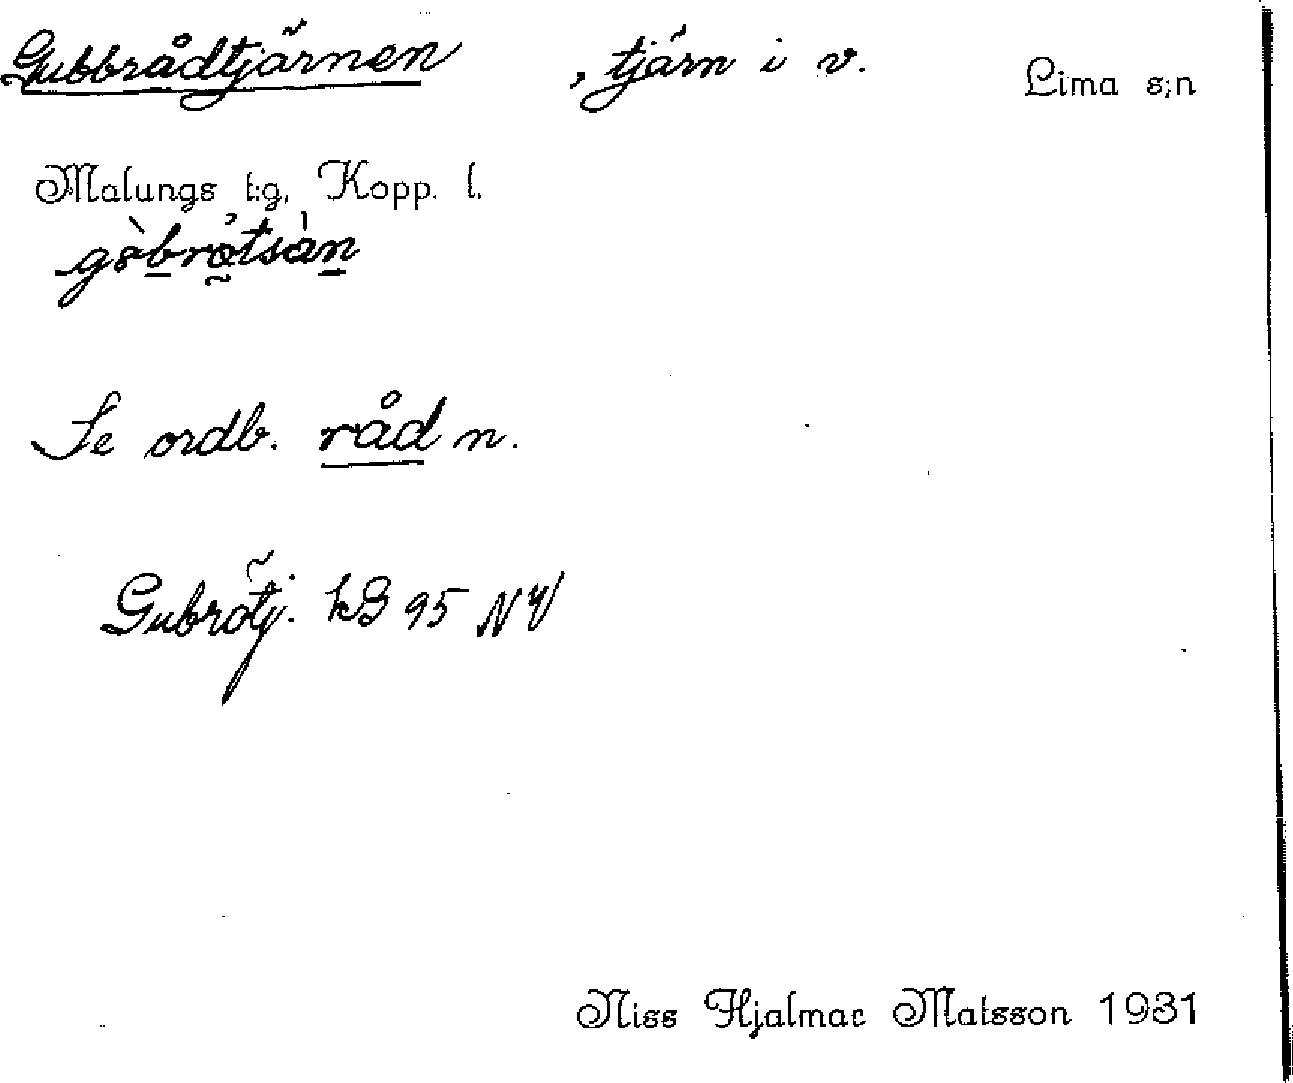 Gubbrådtjärnen , tjärn i v. Lima s;n
Malungs t:g, Kopp. l.
Se ordb. råd n.
Gubrötj. kB 95 NV
Niss Hjalmar Matsson 1931